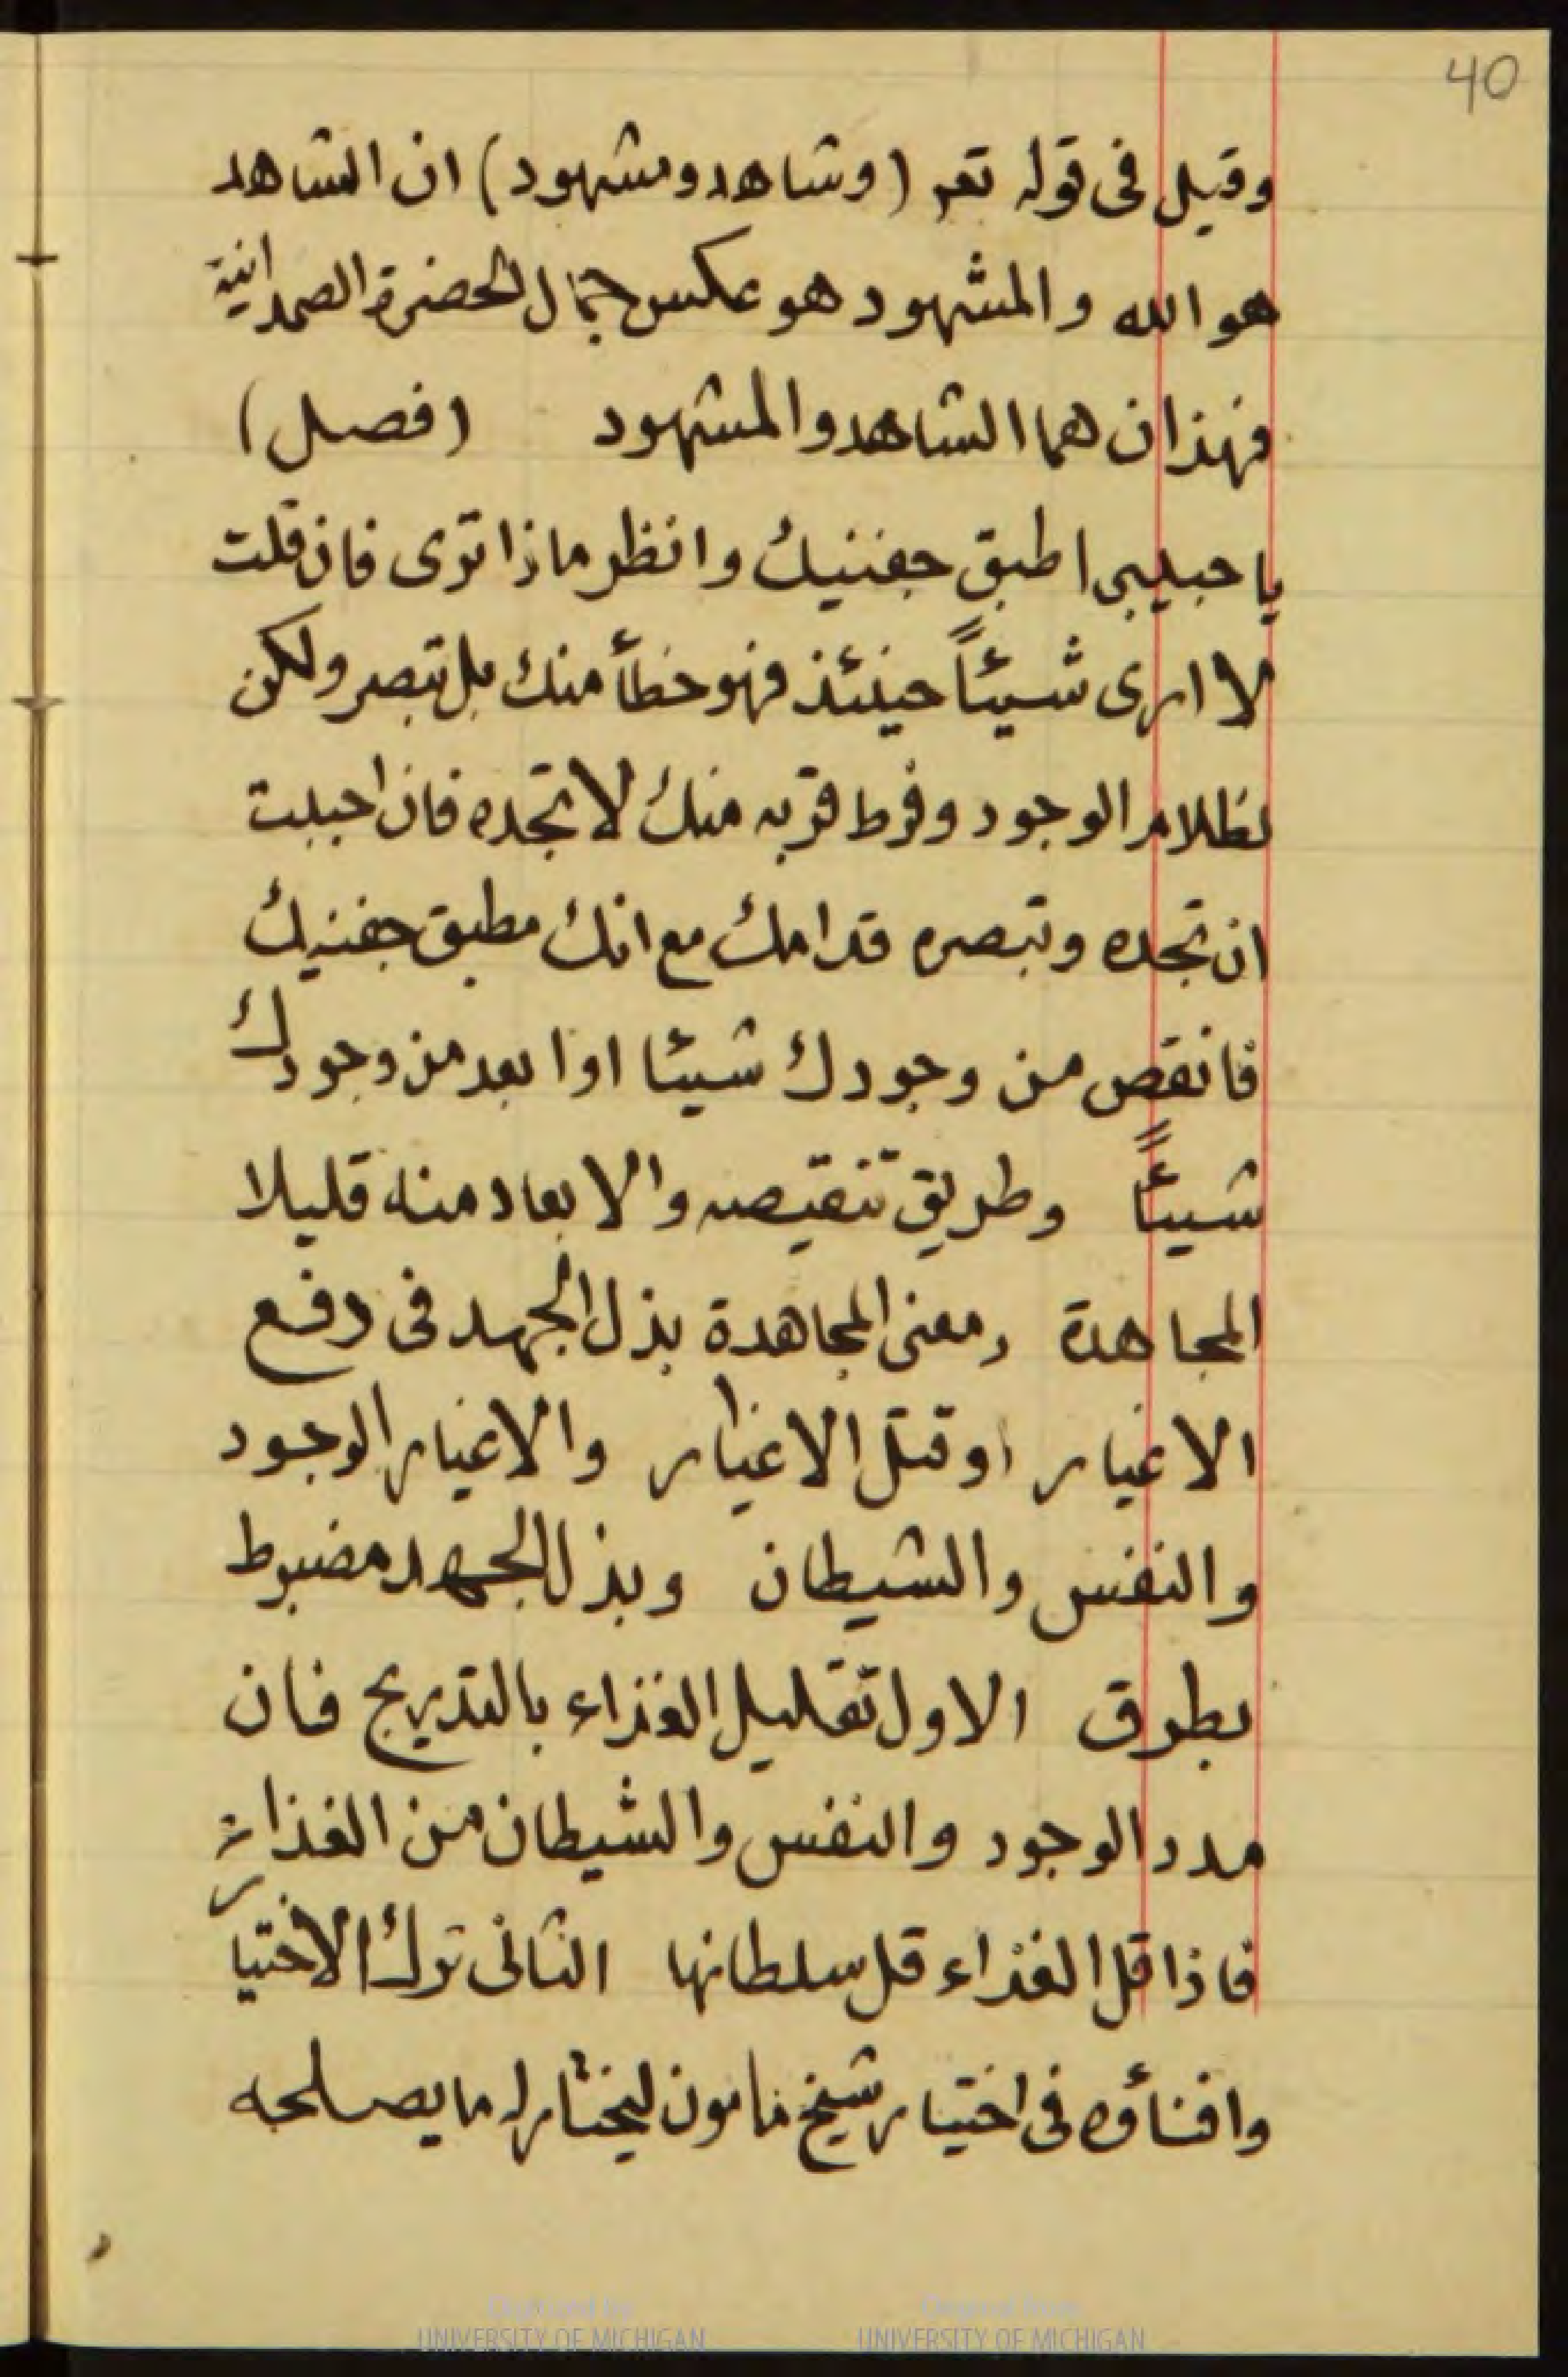 40
وقيل فى قوله تعم (وشاهد ومشهود) ان الشاهد
هو الله والمشهود هو عكس جمال الحضرة الصمدانية
فهذان هما الشاهد والمشهود (فصل)
يا حبيبى اطبق جفنيك وانظر ماذا ترى فان قلت
لا ارى شيئاً حينئذ فهو خطأ منك بل تبصر ولكن
لظلام الوجود وفرط قربه منك لا تجده فان احببت
ان تجده وتبصره قدامك مع انك مطبق جفنيك
فانقص من وجودك شيئا او ابعد من وجودك
شيئاً وطريق تنقيصه والابعاد منه قليلا
المجاهدة ومعنى المجاهدة بذل الجهد فى دفع
الاغيار او قتل الاغيار والاغيار الوجود
والنفس والشيطان وبذل الجهد مضبوط
بطرق الاول تقليل الغذاء بالتدريج فان
مدد الوجود والنفس والشيطان من الغذاء
فاذا قل الغذاء قل سلطانها الثانى ترك الاختيار
وافنأؤه فى اختيار شيخ مامون ليختار له ما يصلحه
Digitized by
UNIVERSITY OF MICHIGAN
Original from
UNIVERSITY OF MICHIGAN